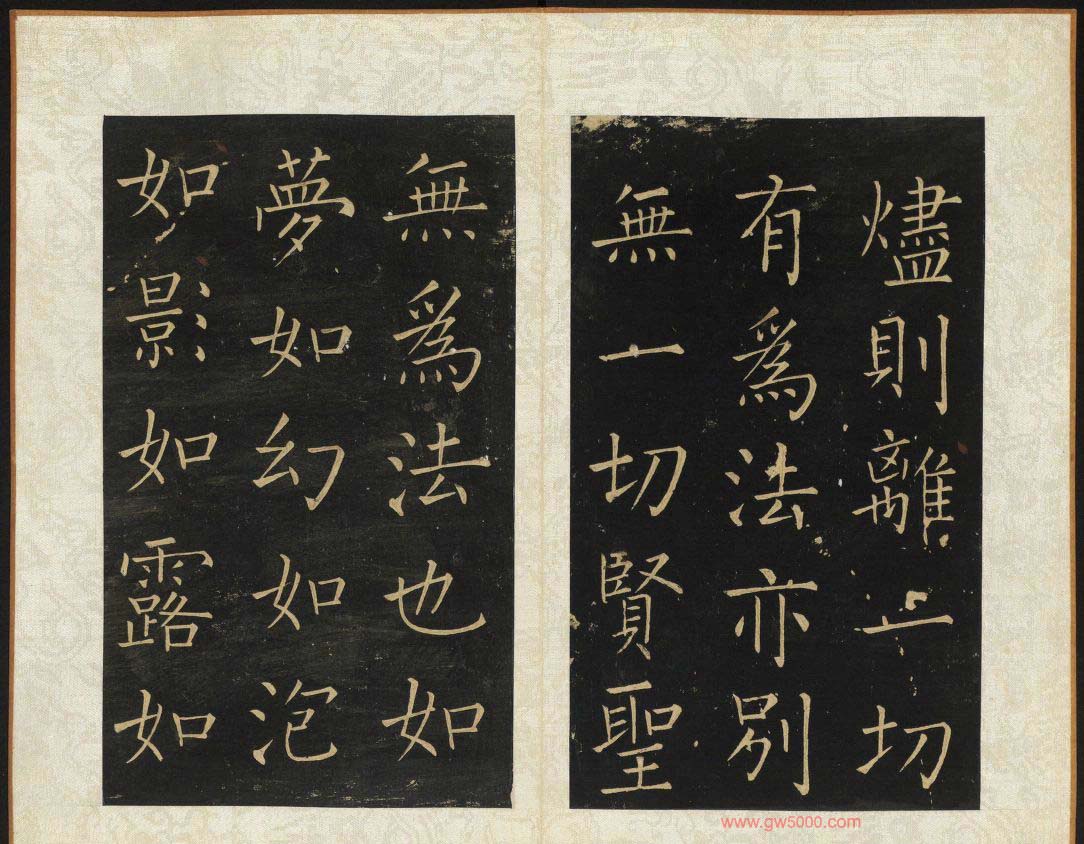 燼則離一切
有爲法亦別
無一切賢聖
無爲法也如
夢如幻如泡
如影如露如
www.gw5000.com